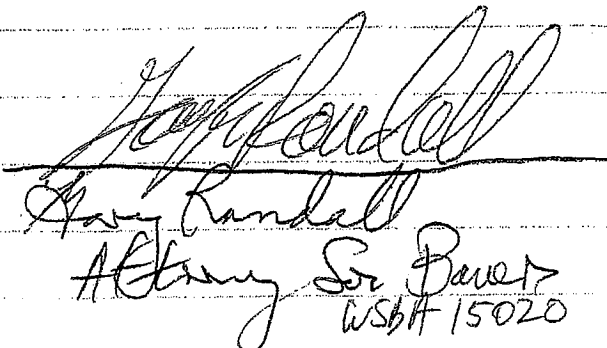 Gary Randall
Gary Randall
Attorney for Bauer
WSBA 15020